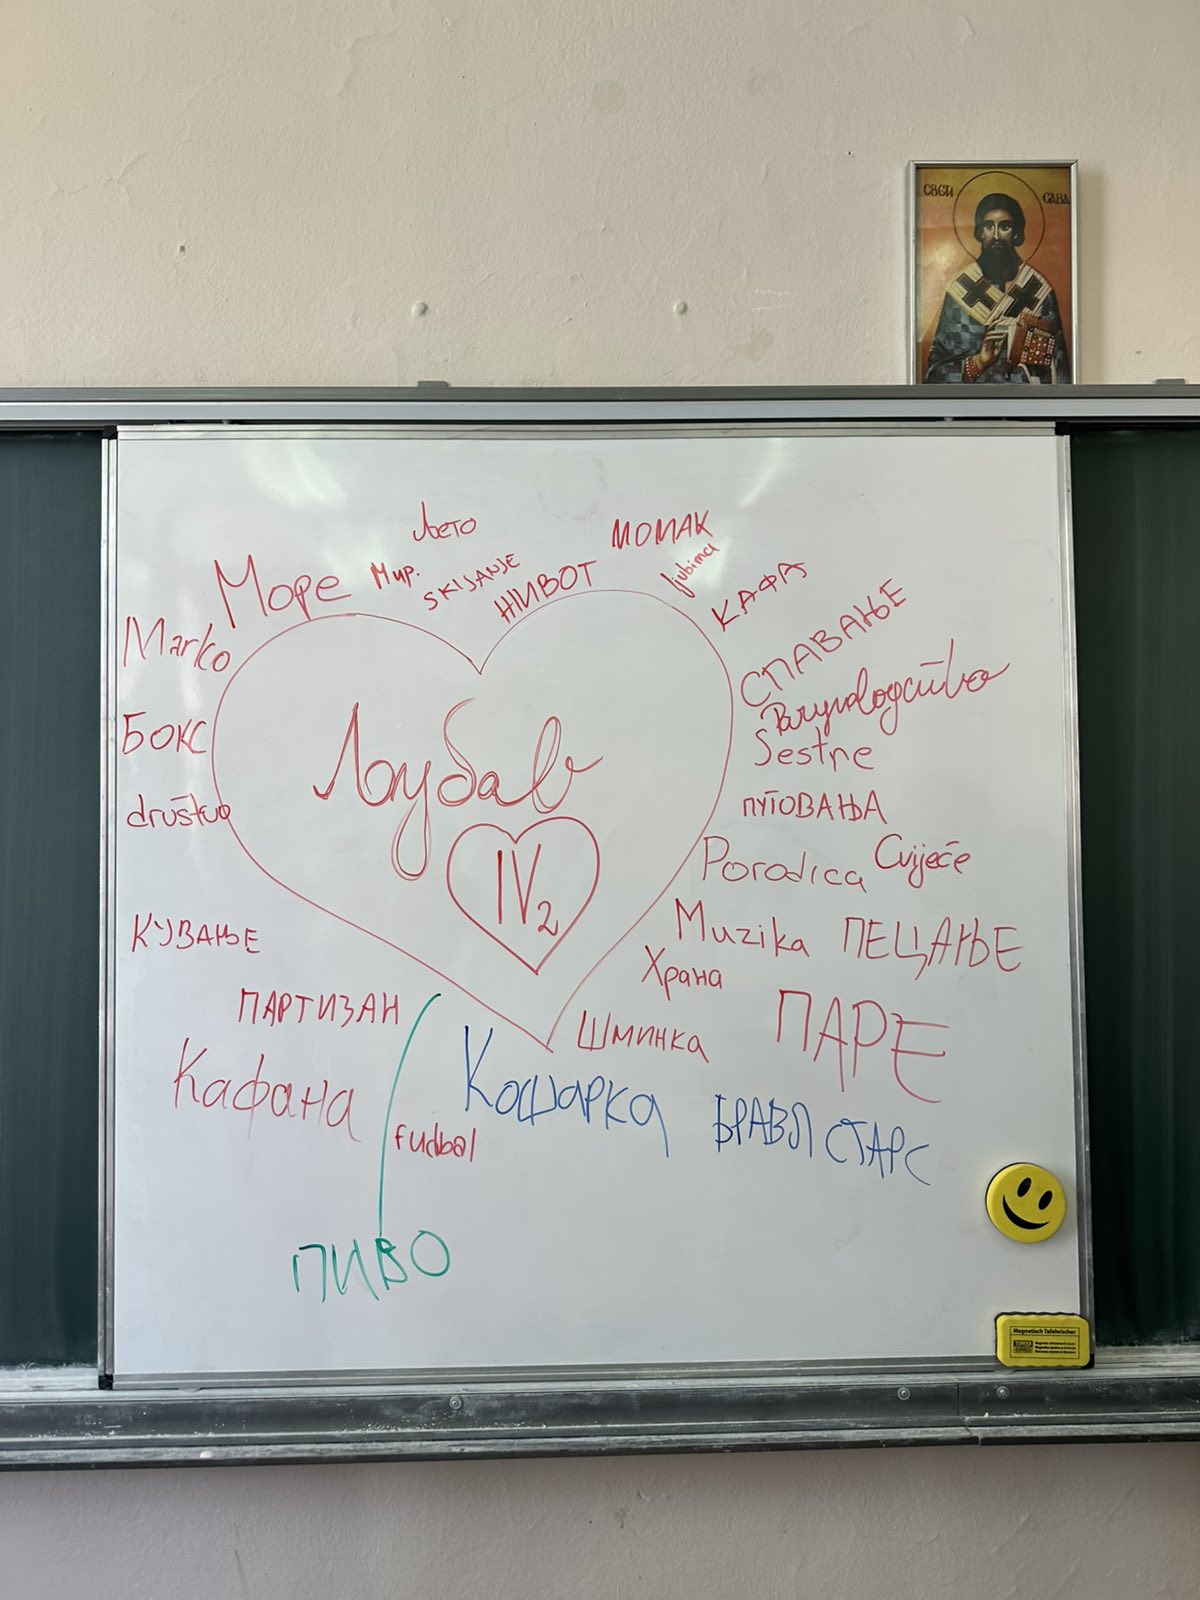 СВЕТИ САВА
Љето
МОМАК
Море
Мир.
SKIJANJE
ЖИВОТ
ljubimci
КАФА
Marko
СПАВАЊЕ
Љубав
Бокс
Sestre
društvo
ПУТОВАЊА
IV2
Porodica
Cvijeće
КУВАЊЕ
Muzika
ПЕЦАЊЕ
Храна
ПАРТИЗАН
Шминка
ПАРЕ
Кафана
Кошарка
БРАВЛ СТАРС
fudbal
ПИВО
Magnetisch Tafelwischer